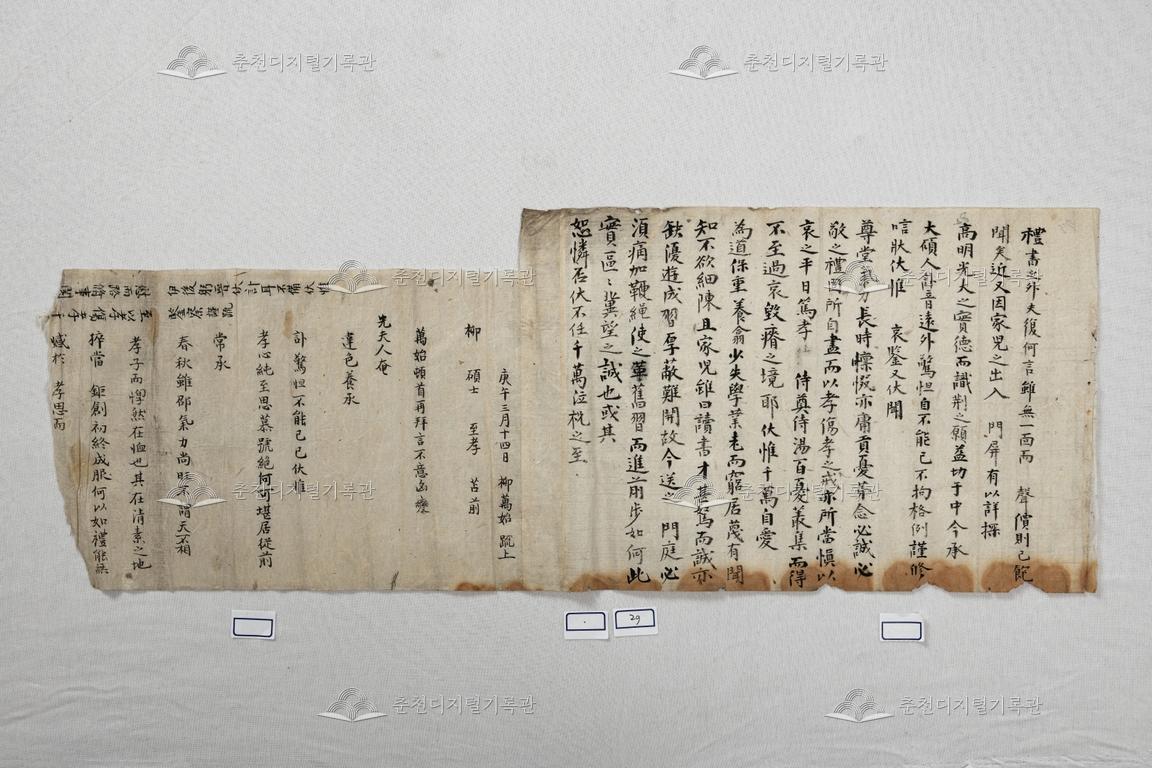 禮書之外夫復何言雖無一面而 聲償則已飽
聞矣近又因家兒之出入 門屏有以詳探
高明光大之實德而識荆之願益切于中今承
大碩人 音遠外驚怛自不能已不拘格例謹修
唁狀伏惟 哀鑒又伏聞
尊堂氣力長時懍慨亦庸貢憂 念必誠必
敬之禮 所自盡而以孝傷孝之戒亦所當愼以
哀之平日篤孝 侍奠侍湯百憂叢集而得
不至過哀毁瘠之境耶伏惟千萬自愛
為道保重養 少失學業老而窮居蔑有聞
知不欲細陳且家兒雖曰讀書才甚駑而誠亦
缺優遊成習厚蔽難開故今送之 門庭必
須痛加鞭繩使之革舊習而進前步如何此
實區〻冀望之誠也或其
恕憐否伏不任千萬泣祝之至
庚午三月十四日 柳萬始 疏上
柳 碩士 至孝 苫前
萬始頓首再拜言不意凶變
先夫人奄
違色養承
訃驚怛不能已已伏惟
孝心純至思慕號絕何可堪居從前
常承
春秋雖卲氣力尚旺不謂天不相
孝子而 然在 也其在清素之地
猝當 鉅創初終成服何以如禮能無
憾於 孝思而
춘천디지털기록관
춘천디지털기록관
춘천디지털기록관
춘천디지털기록관
춘천디지털기록관
춘천디지털기록관
춘천디지털기록관
춘천디지털기록관
29